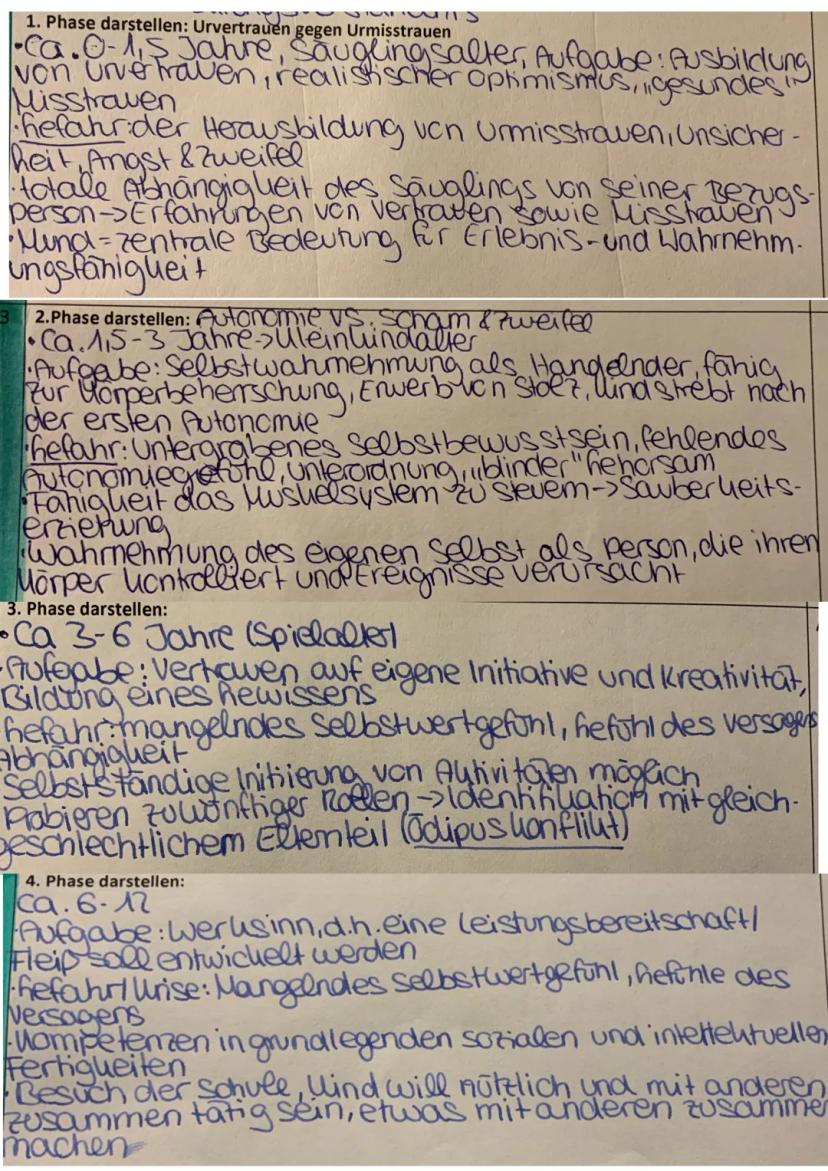 1. Phase darstellen: Urvertrauen gegen Urmisstrauen
•Ca. 0-1,5 Jahre, Säuglingsalter, Aufgabe: Ausbildung
von Urvertrauen, realistischer Optimismus, "gesundes"
Misstrauen
·Gefahr: der Herausbildung von Urmisstrauen, Unsicher-
heit, Angst & Zweifel
·totale Abhängigkeit des Säuglings von seiner Bezugs-
person->Erfahrungen von Vertrauen sowie Misstrauen
·Mund=zentrale Bedeutung für Erlebnis-und Wahrnehm-
ungsfähigkeit
3
2.Phase darstellen: Autonomie vs. Scham & Zweifel
• Ca. 1,5-3 Jahre->Kleinkindalter
·Aufgabe: Selbstwahrnehmung als Handelnder, fähig
zur Körperbeherrschung, Erwerb von Stolz, Kind strebt nach
der ersten Autonomie
·Gefahr: Untergrabenes Selbstbewusstsein, fehlendes
Autonomiegefühl, Unterordnung, "blinder" Gehorsam
·Fähigkeit das Muskelsystem zu steuern->Sauberkeits-
erziehung
·Wahrnehmung des eigenen Selbst als Person, die ihren
Körper kontrolliert und Ereignisse verursacht
3. Phase darstellen:
• Ca 3-6 Jahre (Spielalter)
·Aufgabe: Vertrauen auf eigene Initiative und Kreativität,
Bildung eines Gewissens
Gefahr: mangelndes Selbstwertgefühl, Gefühl des Versagens
Abhängigkeit
Selbstständige Initiierung von Aktivitäten möglich
Probieren zukünftiger Rollen->Identifikation mit gleich-
geschlechtlichem Elternteil (Ödipuskonflikt)
4. Phase darstellen:
Ca. 6-12
·Aufgabe: Werksinn, d.h. eine Leistungsbereitschaft/
Fleiß soll entwickelt werden
·Gefahr/Krise: Mangelndes Selbstwertgefühl, Gefühle des
Versagens
·Kompetenzen in grundlegenden sozialen und intellektuellen
Fertigkeiten
·Besuch der Schule, Kind will nützlich und mit anderen
zusammen tätig sein, etwas mit anderen zusammen
machen